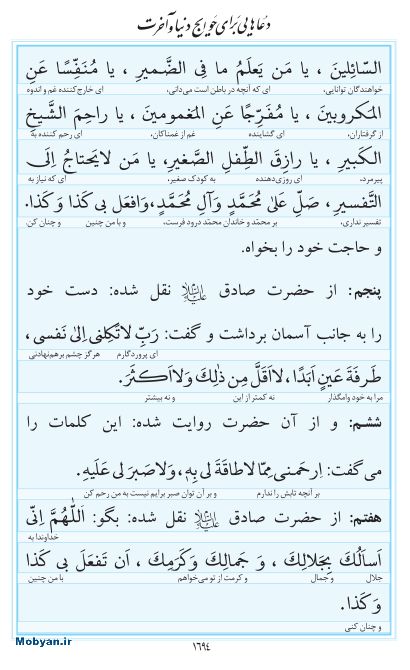 دعاهایی برای حوایج دنیا و آخرت
السّائِلینَ ، یا مَن یَعلَمُ ما فِی الضَّمیرِ ، یا مُنَفِّسًا عَنِ
خواهندگان توانایی، ای که آنچه در باطن است می‌دانی، ای خارج‌کننده غم و اندوه
المَکروبینَ ، یا مُفَرِّجًا عَنِ المَغمومینَ ، یا راحِمَ الشَّیخِ
از گرفتاران، ای گشاینده غم از غمناکان، ای رحم کننده به
الکَبیرِ ، یا رازِقَ الطِّفلِ الصَّغیرِ، یا مَن لایَحتاجُ اِلَی
پیرمرد، ای روزی‌دهنده به کودک صغیر، ای که نیاز به
التَّفسیرِ ، صَلِّ عَلیٰ مُحَمَّدٍ وَآلِ مُحَمَّدٍ،وَافعَل بی کَذا وَ کَذا.
تفسیر نداری، بر محمّد و خاندان محمّد درود فرست، و با من چنین و چنان کن
و حاجت خود را بخواه.
پنجم: از حضرت صادق علیه‌السلام نقل شده: دست خود
را به جانب آسمان برداشت و گفت: رَبِّ لاتَکِلنی اِلیٰ نَفسی ،
ای پروردگارم هرگز چشم برهم‌نهادنی
طَرفَةَ عَینٍ اَبَدًا ، لااَقَلَّ مِن ذٰلِكَ وَلااَکثَرَ.
مرا به خود وامگذار نه کمتر از این و نه بیشتر
ششم: و از آن حضرت روایت شده: این کلمات را
می‌گفت: اِرحَمنی مِمّا لاطاقَةَ لی بِهِ ، وَلاصَبرَ لی عَلَیهِ.
بر آنچه تابش را ندارم و بر آن توان صبر برایم نیست به من رحم کن
هفتم: از حضرت صادق علیه‌السلام نقل شده: بگو: اَللّٰهُمَّ اِنّی
خداوندا به
اَسأَلُكَ بِجَلالِكَ ، وَ جَمالِكَ وَکَرَمِكَ ، اَن تَفعَلَ بی کَذا
جلال و جمال و کرمت از تو می‌خواهم با من چنین
وَ کَذا.
و چنان کنی
۱۶۹۴
Mobyan.ir